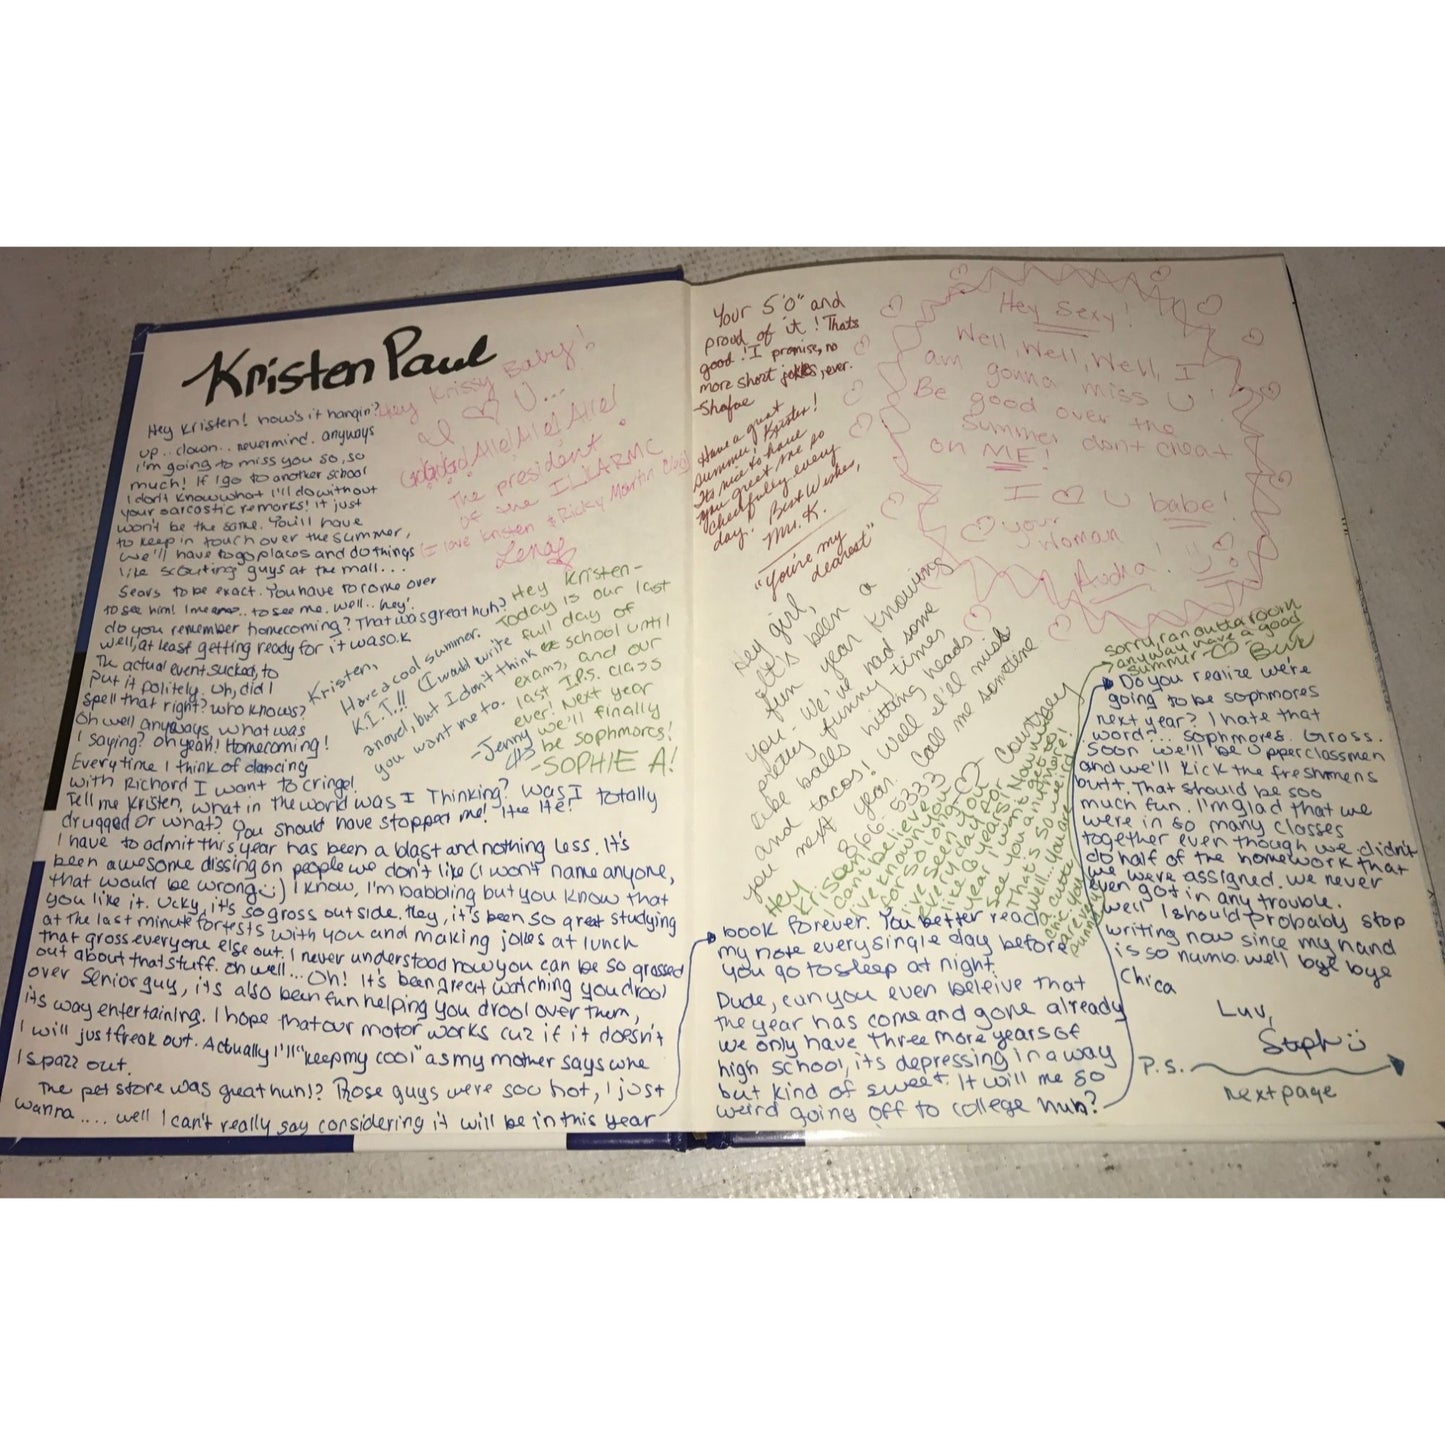 Kristen Paul
Hey Kristen! how's it hangin?
up.. down.. nevermind. anyways
i'm going to miss you so, so
much! If I go to another school
I don't know what I'll do without
your sarcastic remarks! it just
won't be the same. You'll have
to keep in touch over the summer,
we'll have to go places and do things
like scouting guys at the mall...
Sears to be exact. You have to come over
to see him! I mean.. to see me. well.. hey!
do you remember homecoming? That was great huh?
well, at least getting ready for it was O.K
The actual event sucked, to
put it politely. uh, did I
spell that right? who knows?
Oh well anyways, what was
I saying? oh yeah! Homecoming!
Everytime I think of dancing
with Richard I want to cringe!
Tell me Kristen, what in the world was I Thinking? was I totally
drugged or what? You should have stopped me!
I have to admit this year has been a blast and nothing less. It's
been awesome dissing on people we don't like (I won't name anyone,
that would be wrong :) I know, I'm babbling but you know that
you like it. Ucky, it's so gross outside. Hey, it's been so great studying
at the last minute for tests with you and making jokes at lunch
that gross everyone else out. I never understood how you can be so grossed
out about that stuff. oh well... Oh! It's been great watching you drool
over Senior guy, it's also been fun helping you drool over them,
its way entertaining. I hope that our motor works cuz if it doesn't
I will just freak out. Actually I'll "keep my cool" as my mother says whe
I spazz out.
The pet store was great huh!? Those guys were soo hot, I just
wanna.... well I can't really say considering it will be in this year
Hey Krissy Baby!
I ♡ U...
Alle! Alle! Alle!
The president
of the ILARMC
(I love Kristen & Ricky Martin Club)
Lena
Kristen,
Have a cool summer.
K.I.T.!! (I would write
a novel, but I don't think
you want me to.
-Jenny
Hey Kristen-
Today is our last
full day of
school until
exams, and our
last I.P.S. class
ever! Next year
we'll finally
be sophmores!
-SOPHIE A!
Your 5'0" and
proud of it! Thats
good! I promise, no
more short jokes, ever.
-Shafae
Have a great
summer, Kristen!
It's nice to have
you greet me so
cheerfully every
day. Best Wishes,
Ms. K.
"You're my
dearest"
Hey Sexy!
Well, Well, Well, I
am gonna miss U!
Be good over the
Summer dont cheat
on ME!
I ♡ U babe!
♡ your
woman
Audha!
Hey girl,
It's been a
fun year knowing
you- We've had some
pretty funny times
like balls hitting heads
you and tacos! Well I'll miss
next year. Call me sometime
866-5333 ♡ Courtney
Hey
Kristen
Cant believe
I've known you
for so long.
I've seen you
every day for
like 6 years! Now
year I wont get to
see you anymore!
That's so weird!
Well, you are
a cute
chic you
are very
funny
sorry ran outta room
anyway have a good
summer ♡
book forever. You better read
my note every single day before
you go to sleep at night.
Dude, can you even beleive that
the year has come and gone already
we only have three more years of
high school, it's depressing in a way
but kind of sweet. It will me so
weird going off to college huh?
Do you realize we're
going to be sophmores
next year? I hate that
word?... sophmores. Gross.
Soon we'll be upperclassmen
and we'll kick the freshmens
butt. That should be soo
much fun. I'm glad that we
were in so many classes
together even though we didn't
do half of the homework that
we were assigned. we never
even got in any trouble.
well I should probably stop
writing now since my hand
is so numb. well bye bye
Chica
Luv,
Steph :)
P.S.
next page